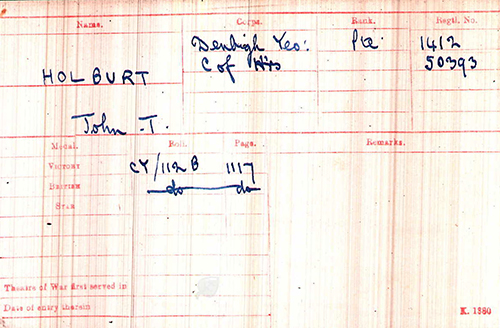 Name. Corps. Rank. Regtl. No.
Denbigh Yeo: Pte. 1412
C of Hrs 50393
HOLBURT
John T.
Medal. Roll. Page. Remarks.
VICTORY CY/112 B 1117
BRITISH do do
STAR
Theatre of War first served in
Date of entry therein
K. 1380